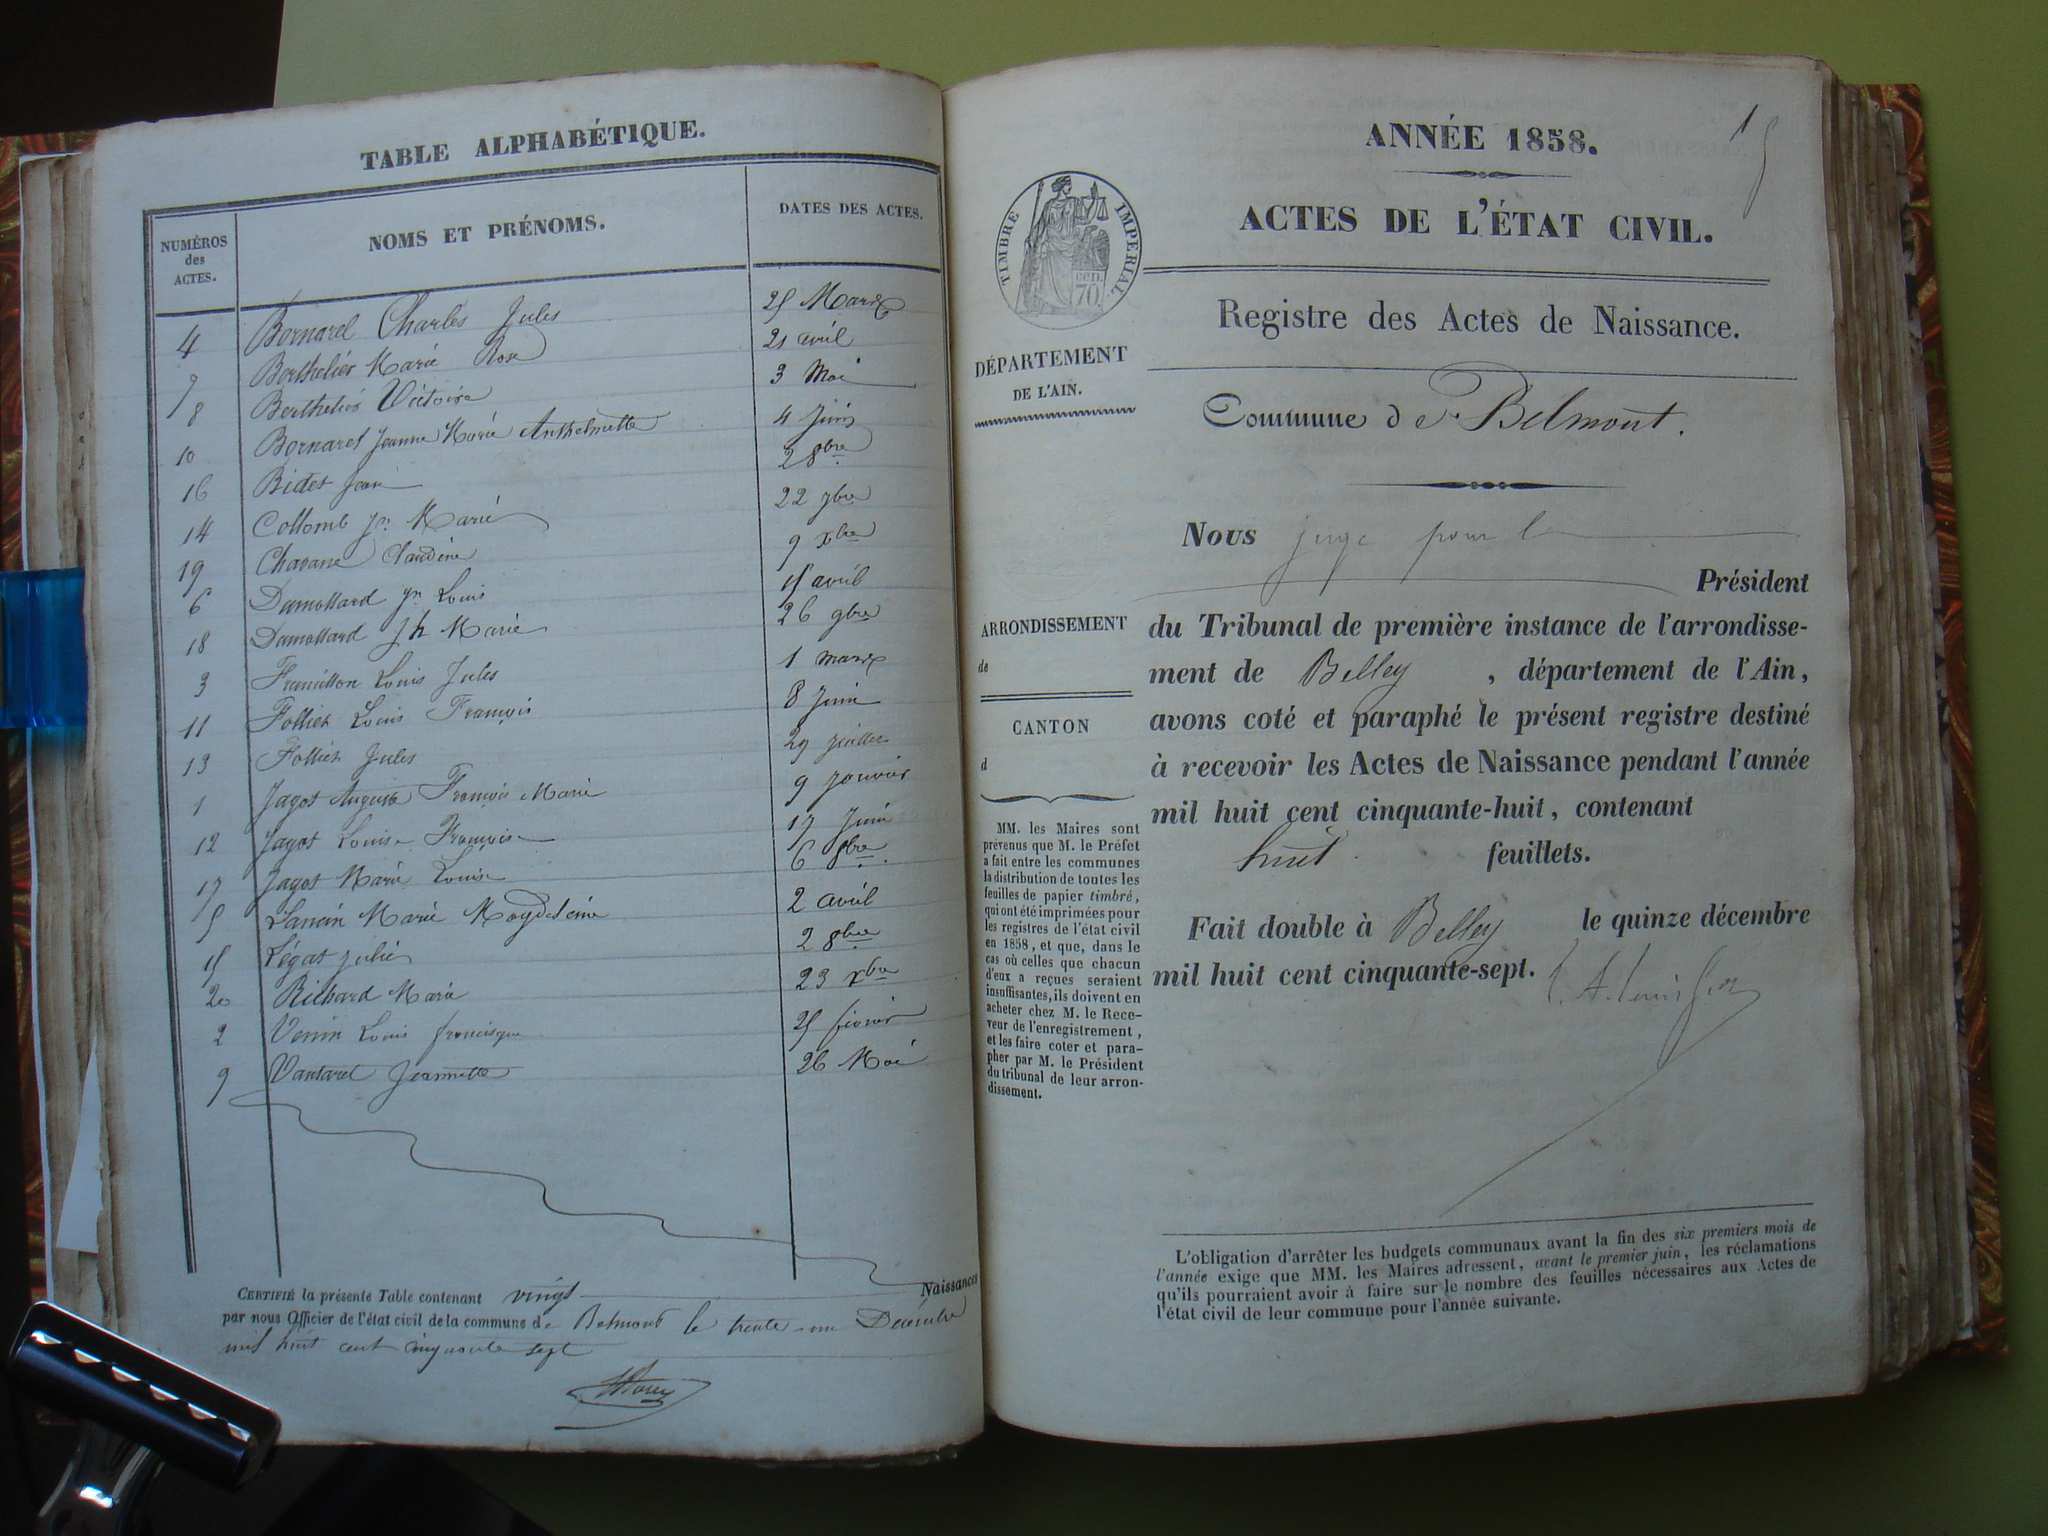 TABLE ALPHABÉTIQUE.
NUMÉROS des ACTES.
NOMS ET PRÉNOMS.
DATES DES ACTES.
4 Bornarel Charles Jules 25 Mars
7 Berthelier Marie Rose 21 avril
8 Berthelier Victoire 3 Mai
10 Bornarel Jeanne Marie Anthelmette 4 Juin
16 Bidet Jean 2 8bre
14 Collomb Jn Marie 22 7bre
19 Chavane Claudine 9 Xbre
6 Damollard Jn Louis 15 avril
18 Damollard Jh Marie 26 9bre
3 Louis Jules 1 mars
11 Folliet Louis François 8 Juin
13 Folliet Jules 29 juillet
1 Jagot Auguste François Marie 9 janvier
12 Jagot Louise Françoise 17 Juin
17 Jagot Marie Louise 6 8bre
5 Lancin Marie Magdeleine 2 avril
15 Légat julie 2 8bre
20 Richard Marie 23 xbre
2 Louis francisque 25 février
9 Vantaret Jeannette 26 Mai
CERTIFIÉ la présente Table contenant vingt Naissances
par nous Officier de l'état civil de la commune de Belmont le trente-un Décembre
mil huit cent cinquante sept
15
ANNÉE 1858.
ACTES DE L'ÉTAT CIVIL.
TIMBRE IMPERIAL.
cen.
70.
Registre des Actes de Naissance.
DÉPARTEMENT
DE L'AIN.
Commune de Belmont.
Nous juge pour le
Président
ARRONDISSEMENT
de
CANTON
d
du Tribunal de première instance de l'arrondisse-
ment de Belley, département de l'Ain,
avons coté et paraphé le présent registre destiné
à recevoir les Actes de Naissance pendant l'année
mil huit cent cinquante-huit, contenant
huit feuillets.
Fait double à Belley le quinze décembre
mil huit cent cinquante-sept.
MM. les Maires sont
prévenus que M. le Préfet
a fait entre les communes
la distribution de toutes les
feuilles de papier timbré,
qui ont été imprimées pour
les registres de l'état civil
en 1858, et que, dans le
cas où celles que chacun
d'eux a reçues seraient
insuffisantes, ils doivent en
acheter chez M. le Rece-
veur de l'enregistrement,
et les faire coter et para-
pher par M. le Président
du tribunal de leur arron-
dissement.
L'obligation d'arrêter les budgets communaux avant la fin des six premiers mois de
l'année exige que MM. les Maires adressent, avant le premier juin, les réclamations
qu'ils pourraient avoir à faire sur le nombre des feuilles nécessaires aux Actes de
l'état civil de leur commune pour l'année suivante.